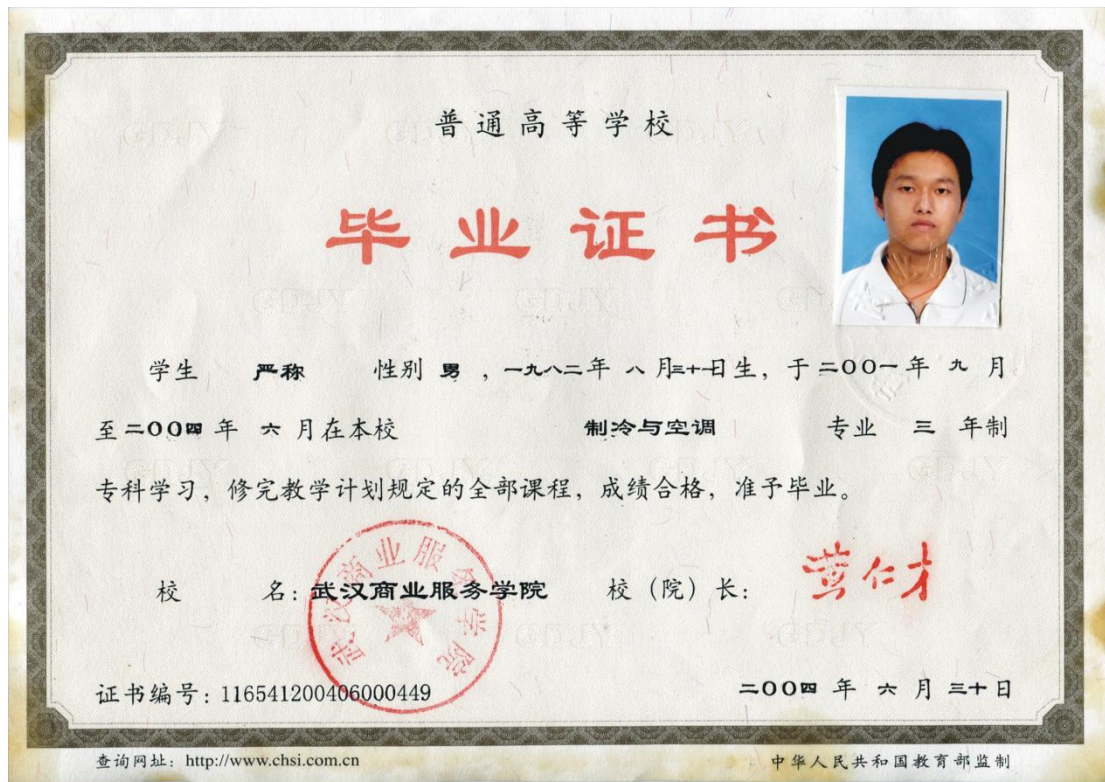 普通高等学校
毕业证书
学生 严称 性别 男 ，一九八二年 八 月三十日生，于二〇〇一年 九 月
至二〇〇四年 六 月在本校 制冷与空调 专业 三 年制
专科学习，修完教学计划规定的全部课程，成绩合格，准予毕业。
校 名：武汉商业服务学院 校（院）长：黄仁才
武汉商业服务学院
证书编号：116541200406000449 二〇〇四 年 六 月 三十日
查询网址：http://www.chsi.com.cn 中华人民共和国教育部监制